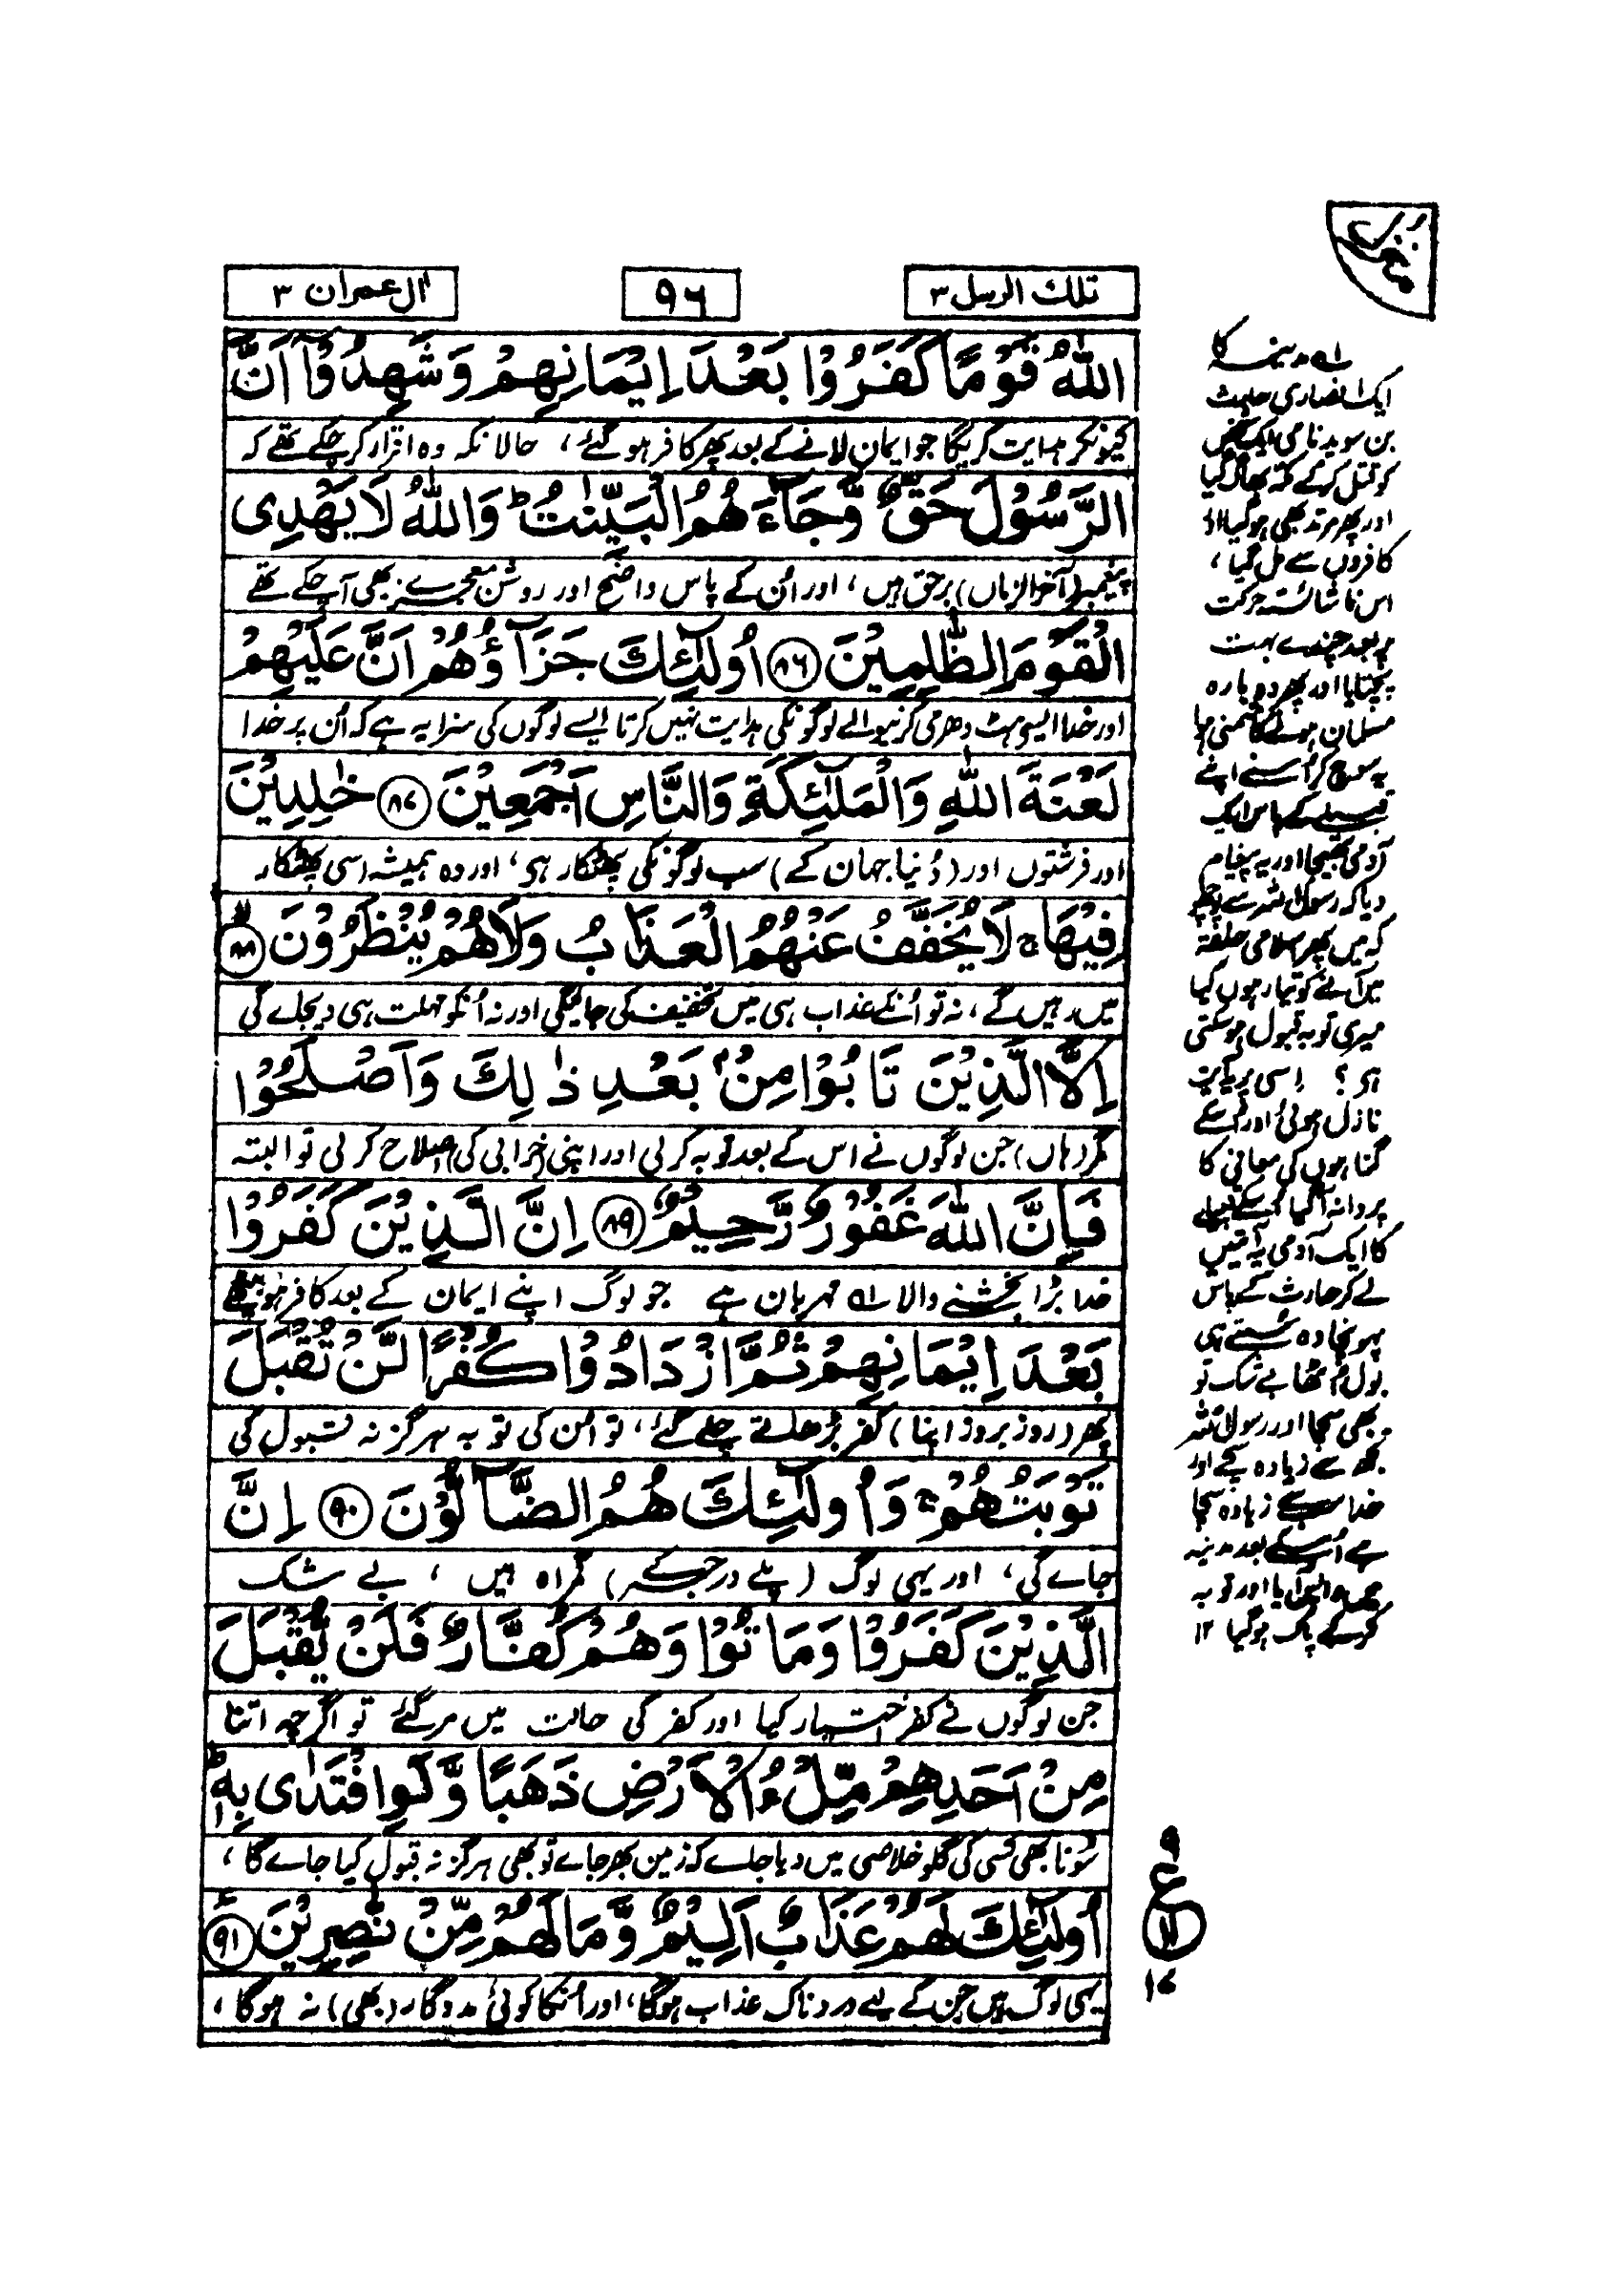 تلك الرسل ۳
۹۶
اٰل عمران ۳
اللّٰهُ قَوْمًا كَفَرُوْا بَعْدَ اِيْمَانِهِمْ وَشَهِدُوْٓا اَنَّ
کیونکر ہدایت کریگا جو ایمان لانے کے بعد پھر کافر ہو گئے، حالانکہ وہ اقرار کر چکے تھے کہ
الرَّسُوْلَ حَقٌّ وَّجَآءَهُمُ الْبَيِّنٰتُ ؕ وَاللّٰهُ لَا يَهْدِى
پیغمبر (آخر الزماں) برحق ہیں، اور اُن کے پاس واضح اور روشن معجزے بھی آ چکے تھے
الْقَوْمَ الظّٰلِمِيْنَ ۸۶ اُولٰٓئِكَ جَزَآؤُهُمْ اَنَّ عَلَيْهِمْ
اور خدا ایسی ہٹ دھرمی کرنیوالے لوگونکی ہدایت نہیں کرتا ایسے لوگوں کی سزا یہ ہے کہ اُن پر خدا
لَعْنَةَ اللّٰهِ وَالْمَلٰٓئِكَةِ وَالنَّاسِ اَجْمَعِيْنَ ۸۷ خٰلِدِيْنَ
اور فرشتوں اور (دُنیا جہان کے) سب لوگونکی پھٹکار ہی، اور وہ ہمیشہ اسی پھٹکار
فِيْهَا ۚ لَا يُخَفَّفُ عَنْهُمُ الْعَذَابُ وَلَا هُمْ يُنْظَرُوْنَ ۸۸
میں رہیں گے، نہ تو اُنکے عذاب ہی میں تخفیف کی جائیگی اور نہ اُنکو مہلت ہی دیجائے گی
اِلَّا الَّذِيْنَ تَابُوْا مِنْۢ بَعْدِ ذٰلِكَ وَاَصْلَحُوْا
مگر (ہاں) جن لوگوں نے اس کے بعد توبہ کر لی اور اپنی (خرابی کی) اصلاح کر لی تو البتہ
فَاِنَّ اللّٰهَ غَفُوْرٌ رَّحِيْمٌ ۸۹ اِنَّ الَّذِيْنَ كَفَرُوْا
خدا بڑا بخشنے والا ۵۱ مہربان ہے جو لوگ اپنے ایمان کے بعد کافر ہو بیٹھے
بَعْدَ اِيْمَانِهِمْ ثُمَّ ازْدَادُوْا كُفْرًا لَّنْ تُقْبَلَ
پھر (روز بروز اپنا) کفر بڑھاتے چلے گئے، تو اُن کی توبہ ہرگز نہ قبول کی
تَوْبَتُهُمْ ۚ وَاُولٰٓئِكَ هُمُ الضَّآلُّوْنَ ۹۰ اِنَّ
جاے گی، اور یہی لوگ (پلے درجے کے) گمراہ ہیں، بے شک
الَّذِيْنَ كَفَرُوْا وَمَاتُوْا وَهُمْ كُفَّارٌ فَلَنْ يُّقْبَلَ
جن لوگوں نے کفر اختیار کیا اور کفر کی حالت میں مر گئے تو اگرچہ اتنا
مِنْ اَحَدِهِمْ مِّلْءُ الْاَرْضِ ذَهَبًا وَّلَوِ افْتَدٰى بِهٖ ؕ
سونا بھی کسی کی گلو خلاصی میں دیا جاے کہ زمین بھر جاے تو بھی ہرگز نہ قبول کیا جاے گا،
اُولٰٓئِكَ لَهُمْ عَذَابٌ اَلِيْمٌ وَّمَا لَهُمْ مِّنْ نّٰصِرِيْنَ ۹۱
یہی لوگ ہیں جن کے لیے دردناک عذاب ہوگا، اور اُنکا کوئی مددگار (بھی) نہ ہوگا،
۵۱ مدینہ کا
ایک انصاری حارث
بن سوید نامی ایک شخص
کو قتل کر کے مکہ بھاگ گیا
اور پھر مرتد بھی ہو گیا اور
کافروں سے مل گیا،
اس ناشائستہ حرکت
پر بعد چندے بہت
پچتایا اور پھر دوبارہ
مسلمان ہونے کا متمنی ہوا
یہ سوچ کر اُسنے اپنے
قبیلے کے پاس ایک
آدمی بھیجا اور یہ پیغام
دیا کہ رسول اللہ سے پوچھو
کہ میں پھر اسلامی حلقہ
میں آنے کو تیار ہوں کیا
میری توبہ قبول ہو سکتی
ہی؟ اسی پر یہ آیت
نازل ہوئی اور اُسکے
گناہوں کی معافی کا
پروانہ آگیا اُسکے قبیلے
کا ایک آدمی یہ آیتیں
لے کر حارث کے پاس
پہونچا وہ سُنتے ہی
بول اُٹھا بے شک تو
بھی سچا اور رسول اللہ
تجھ سے زیادہ سچے اور
خدا سب سے زیادہ سچا
ہے اُسکے بعد مدینہ
میں واپس آیا اور توبہ
کر کے پاک ہو گیا ۱۲
۹
ع
۱۱
۱۷